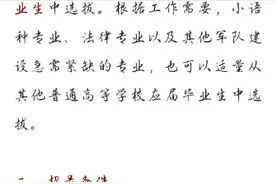 业生中选拔。根据工作需要，小语
种专业、法律专业以及其他军队建
设急需紧缺的专业，也可以适量从
其他普通高等学校应届毕业生中选
拔。
二、招录条件